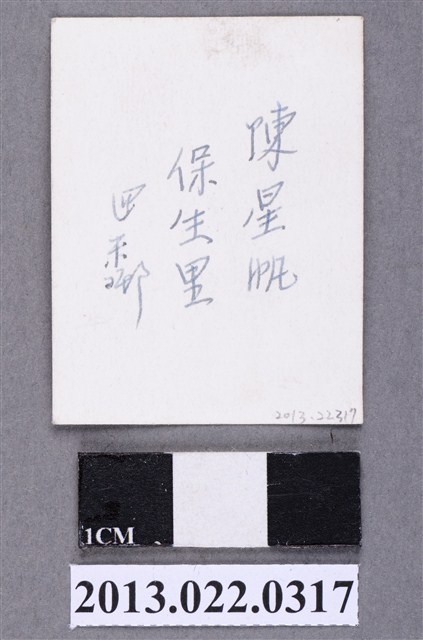 陳星帆
保生里
四鄰
2013.22317
1CM
2013.022.0317